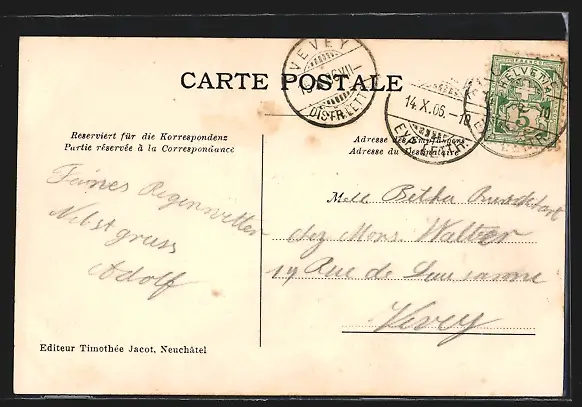 CARTE POSTALE
VEVEY
DISTR. LETT.
14.X.06.-10
HELVETIA
5
Reserviert für die Korrespondenz
Partie réservée à la Correspondance
Adresse des Empfängers
Adresse du Destinataire
Feines Regenwetter
Nebst gruss
Adolf
Melle
chez Mons. Walter
19 Rue de Lausanne
Vevey
Editeur Timothée Jacot, Neuchâtel